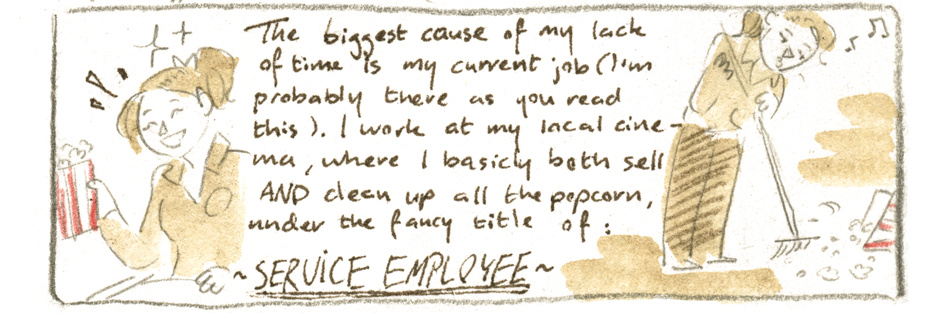 The biggest cause of my lack
of time is my current job (I'm
probably there as you read
this). I work at my local cine-
ma, where I basicly both sell
AND clean up all the popcorn,
under the fancy title of:
~SERVICE EMPLOYEE~